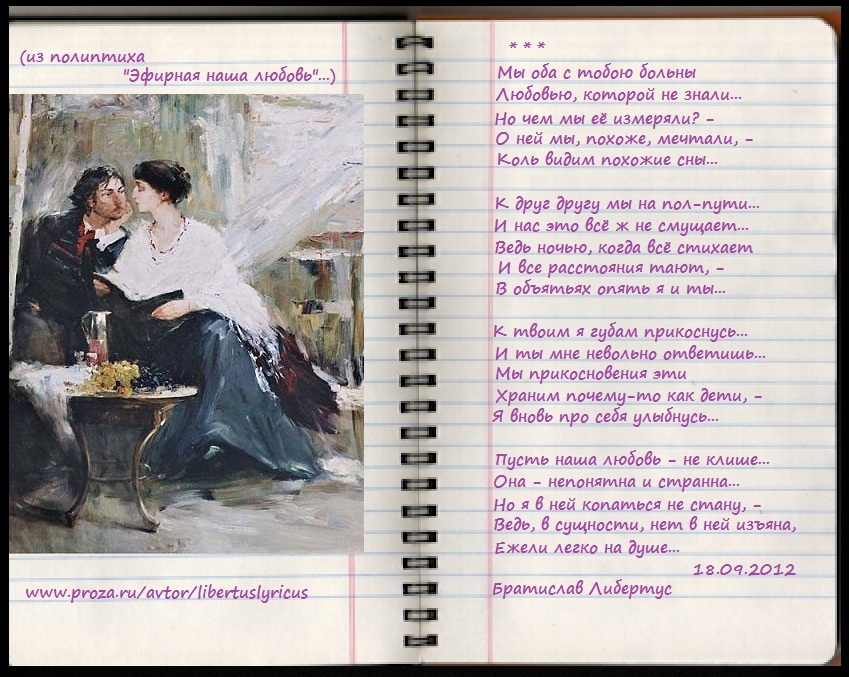 (из полиптиха
"Эфирная наша любовь"...)
www.proza.ru/avtor/libertuslyricus
* * *
Мы оба с тобою больны
Любовью, которой не знали...
Но чем мы её измеряли? -
О ней мы, похоже, мечтали, -
Коль видим похожие сны...
К друг другу мы на пол-пути...
И нас это всё ж не смущает...
Ведь ночью, когда всё стихает
И все расстояния тают, -
В объятьях опять я и ты...
К твоим я губам прикоснусь...
И ты мне невольно ответишь...
Мы прикосновения эти
Храним почему-то как дети, -
Я вновь про себя улыбнусь...
Пусть наша любовь - не клише...
Она - непонятна и странна...
Но я в ней копаться не стану, -
Ведь, в сущности, нет в ней изъяна,
Ежели легко на душе...
18.09.2012
Братислав Либертус